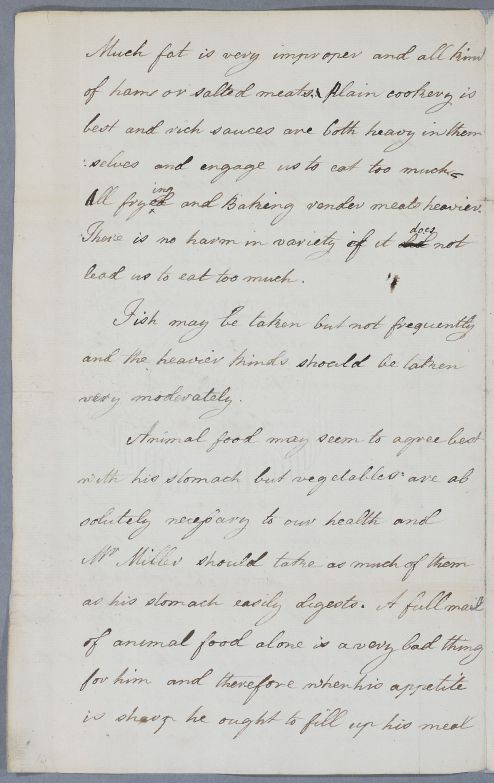 Much fat is very improper and all kind
of hams or salted meats. Plain cookery is
best and rich sauces are both heavy in them
:selves and engage us to eat too much=
All frying and Baking render meats heavier.
There is no harm in variety if it does not
lead us to eat too much.
Fish may be taken but not frequently
and the heavier kinds should be taken
very moderately.
Animal food may seem to agree best
with his stomach but vegetables are ab
solutely necessary to our health and
Mr Miller should take as much of them
as his stomach easily digests. A full meal
of animal food alone is a very bad thing
for him and therefore when his appetite
is sharp he ought to fill up his meal